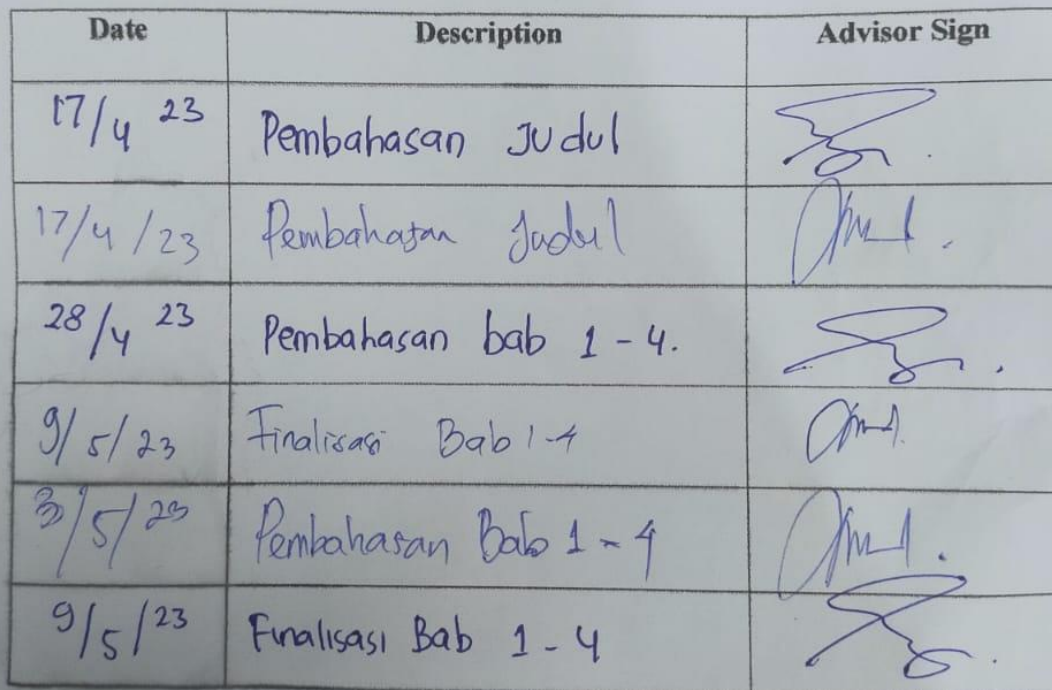 Date Description Advisor Sign
17/4 23 Pembahasan Judul
17/4/23 Pembahasan Judul
28/4 23 Pembahasan bab 1-4.
9/5/23 Finalisasi Bab 1-4
3/5/23 Pembahasan Bab 1-4
9/5/23 Finalisasi Bab 1-4